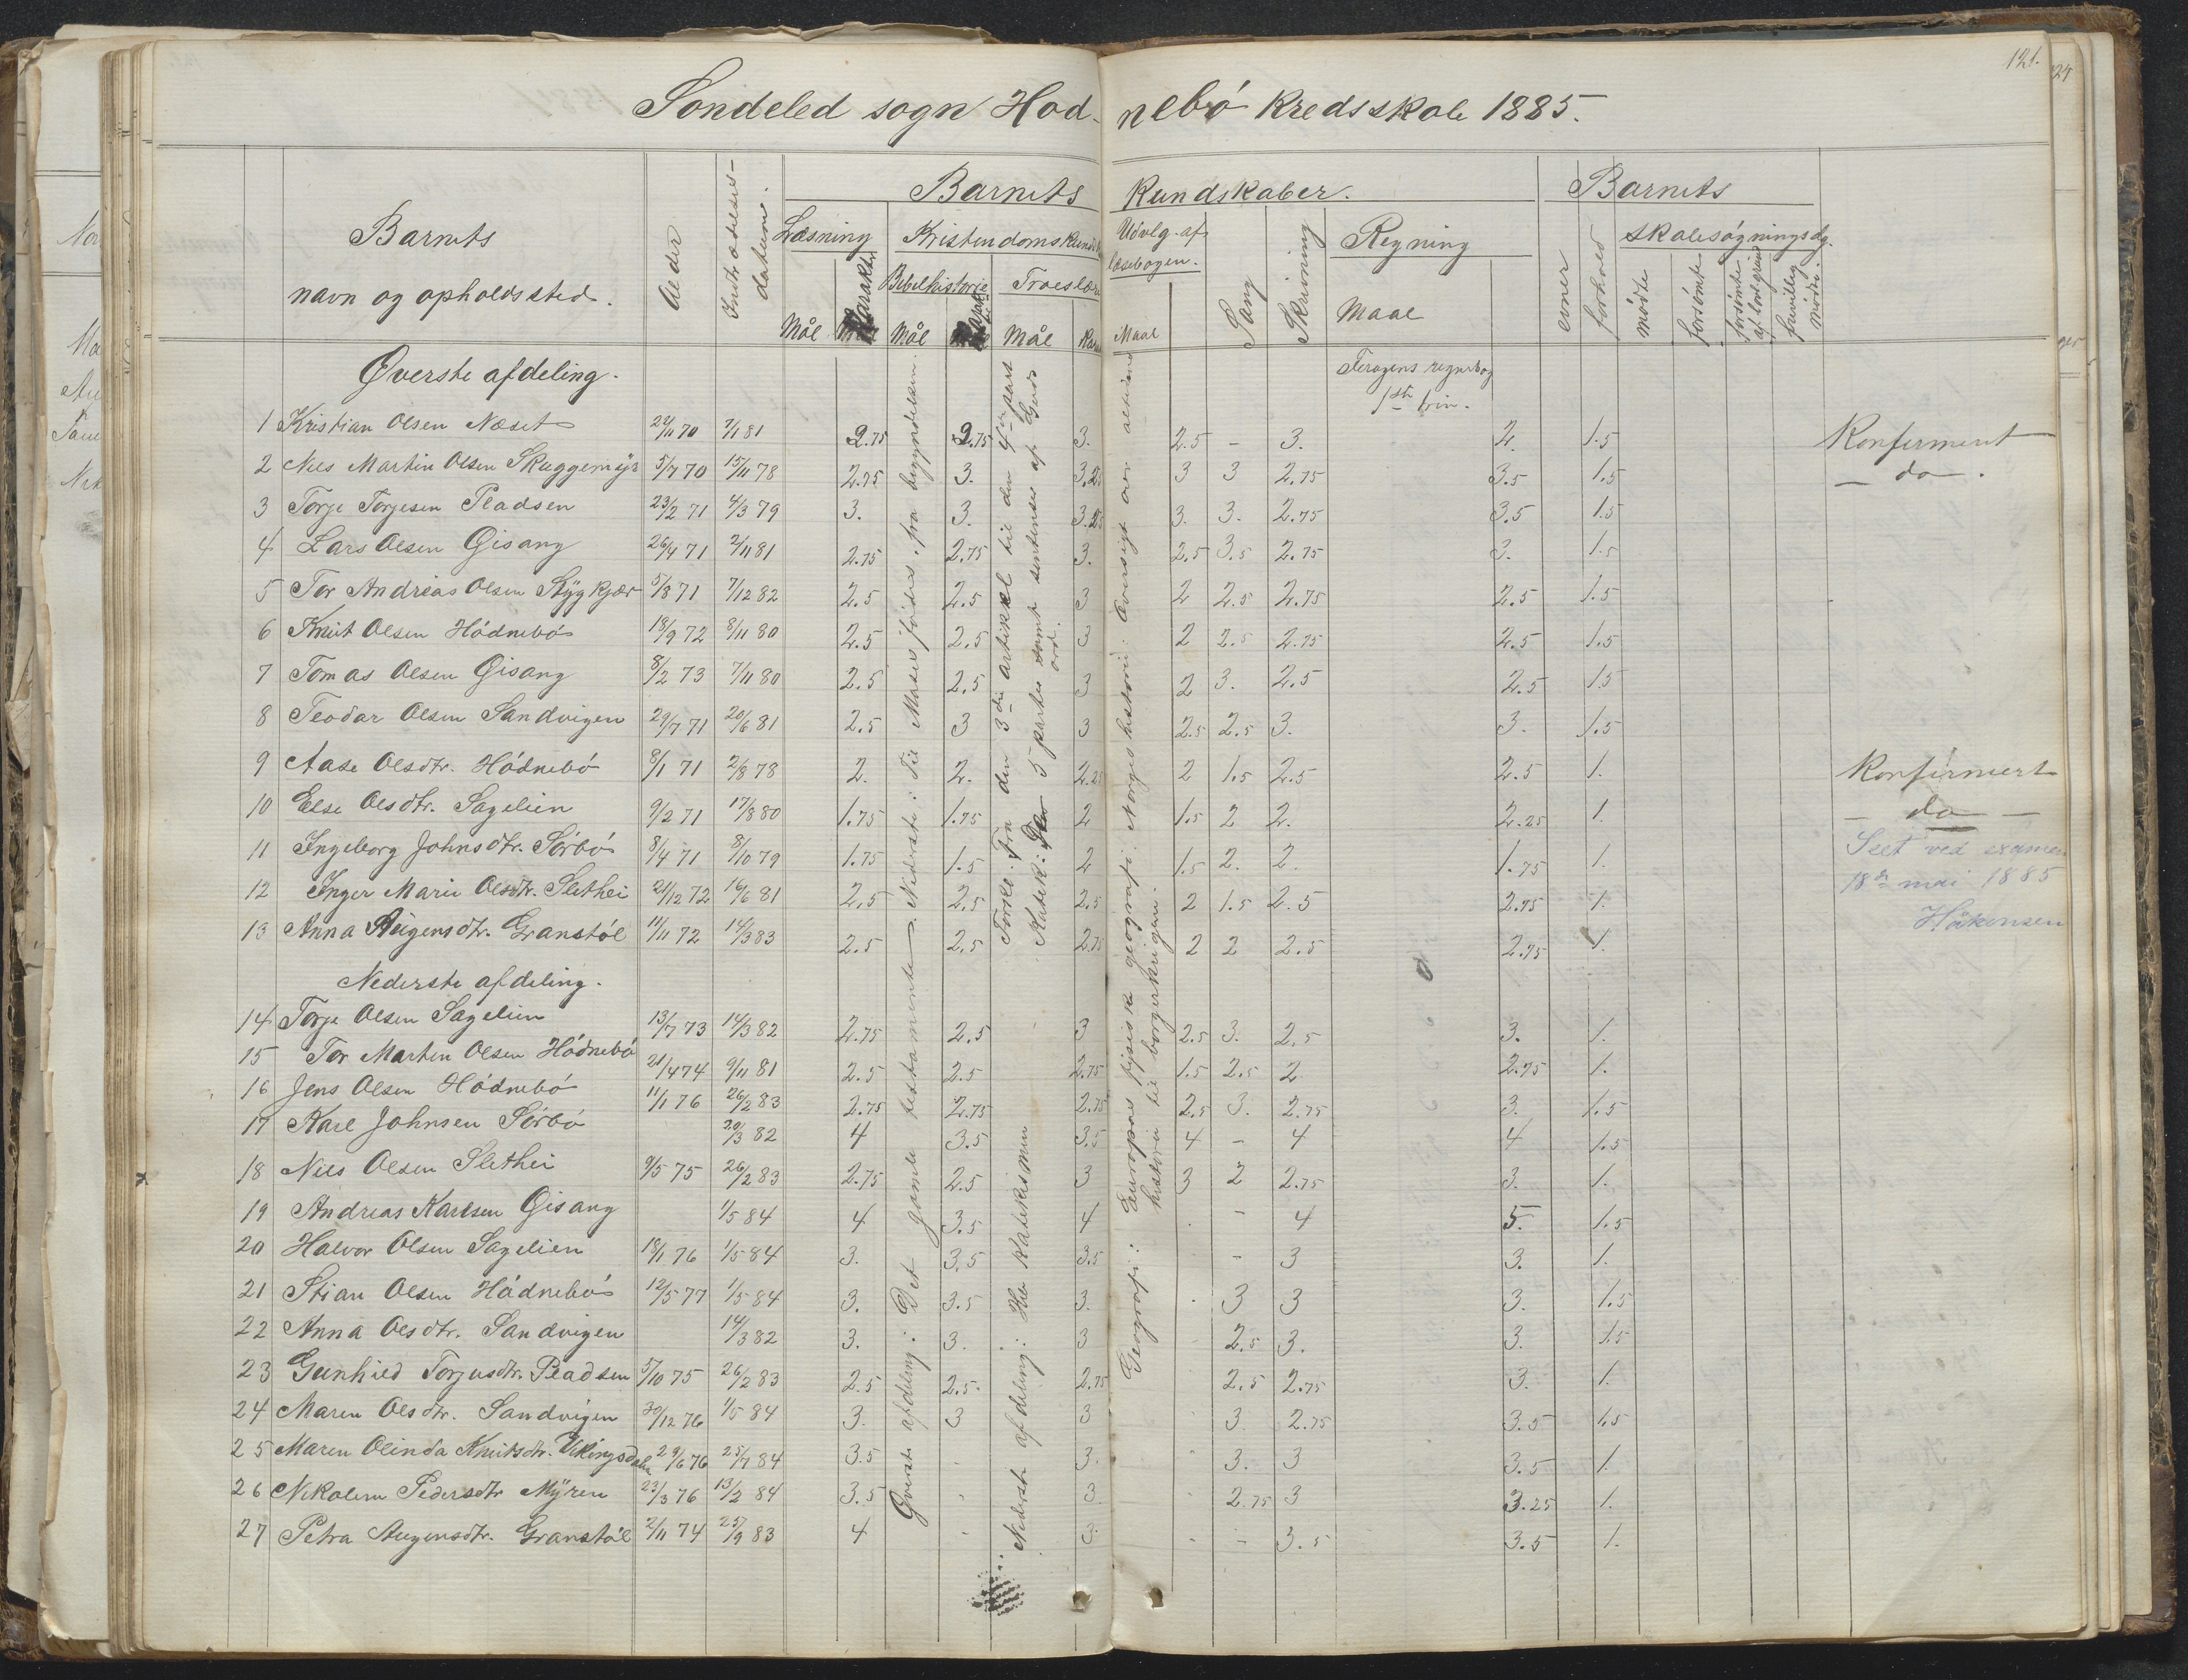 121.
Söndeled sogn Hödnebö Kredsskole 1885.
Barnets navn og opholdssted.
Alder
Indtrædelsesdatum.
Barnets Kundskaber.
Læsning
Kristendomskundsk
Bibelhistorie
Troeslære
Mål Karakter Mål Karakt Mål Kar
Udvlg. af læsebogen.
Maal
Sang
Skrivning
Regning
Maal
Barnets
evner
forhold
skolesøgningsdg.
mödte
forsömte
forsömte af lovl. grund
frivillig mödte.
Överste afdeling.
Geragens regnebog
1ste trin.
1 Kristian Olsen Næset 29/11 70 7/1 81 2.75 2.75 3. 2.5 - 3. 2. 1.5 Konfirmert
2 Nils Martin Olsen Skuggemyr 5/7 70 15/11 78 2.75 3. 3.25 3 3 2.75 3.5 1.5 — do — .
3 Torje Torjesen Pladsen 23/2 71 4/3 79 3. 3. 3.25 3. 3. 2.75 3.5 1.5
4 Lars Olsen Gisang 26/4 71 2/11 81 2.75 2.75 3. 2.5 3.5 2.75 3. 1.5
5 Tor Andreas Olsen Stygkjær 5/8 71 7/12 82 2.5 2.5 3 2 2.5 2.75 2.5 1.5
6 Knut Olsen Hödnebö 18/9 72 8/11 80 2.5 2.5 3 2 2.5 2.75 2.5 1.5
7 Tomas Olsen Gisang 8/2 73 7/11 80 2.5 2.5 3 2 3. 2.5 2.5 1.5
8 Teodar Olsen Sandvigen 29/7 71 20/6 81 2.5 3 3 2.5 2.5 3. 3. 1.5
9 Aase Olsdtr. Hödnebö 8/1 71 2/8 78 2. 2. 2.25 2 1.5 2.5 2.5 1. Konfirmert
10 Else Olsdtr. Sagelien 9/2 71 17/8 80 1.75 1.75 2 1.5 2 2. 2.25 1. — do —
11 Ingeborg Johnsdtr. Sörbö 8/4 71 8/10 79 1.75 1.5 2 1.5 2. 2. 1.75 1. Seet ved examen
12 Inger Marie Olsdtr. Slethei 21/12 72 16/6 81 2.5 2.5 2.5 2 1.5 2.5 2.75 1. 18de mai 1885
13 Anna Augensdtr. Granstöl 11/11 72 14/3 83 2.5 2.5 2.75 2 2 2.5 2.75 1. Håkensen
Nederste afdeling.
14 Torje Olsen Sagelien 13/7 73 14/3 82 2.75 2.5 3 2.5 3. 2.5 3. 1.
15 Tor Martin Olsen Hödnebö 21/4 74 9/11 81 2.5 2.5 2.75 1.5 2.5 2 2.75 1.
16 Jens Olsen Hödnebö 11/1 76 26/2 83 2.75 2.75 2.75 2.5 3. 2.75 3. 1.5
17 Karl Johnsen Sörbö 20/3 82 4 3.5 3.5 4 - 4 4 1.5
18 Nils Olsen Slethei 9/5 75 26/2 83 2.75 2.5 3 3 2 2.75 3. 1.
19 Andreas Karlsen Gisang 1/5 84 4 3.5 4 . - 4 5. 1.5
20 Halvor Olsen Sagelien 18/1 76 1/5 84 3. 3.5 3.5 - 3 3. 1.
21 Stian Olsen Hödnebö 12/5 77 1/5 84 3. 3.5 3. . 3 3 3. 1.5
22 Anna Olsdtr. Sandvigen 14/3 82 3. 3. 3 2.5 3. 3. 1.5
23 Gunhild Torjusdtr. Pladsen 5/10 75 26/2 83 2.5 2.5. 2.75 2.5 2.75 3. 1.
24 Maren Olsdtr. Sandvigen 30/12 76 1/5 84 3. 3 3 3. 2.75 3.5 1.5
25 Maren Olinda Knutsdtr. Vikingsdalen 29/6 76 25/7 84 3.5 . 3. . 3. 3 3.5 1.
26 Nikoline Pedersdtr Myren 23/3 76 13/2 84 3.5 . 3. 2.75 3 3.25 1.
27 Petra Augensdtr. Granstöl 2/11 74 25/9 83 4 - 3. . - 3.5 3.5 1.
Överste afdeling: Det gamle testamente. Nederste: Til Moses' födsel, fra begyndelsen.
Nederste afdeling: Lille Katekismen
Forkl: Fra den 3die artikkel til den 4de part
Katek: De 5 parter samt sentenser af Guds ord.
Geografi: Europas fysiske geografi. Norges historie: Oversigt over oldtidens
historie til borgerkrigene.